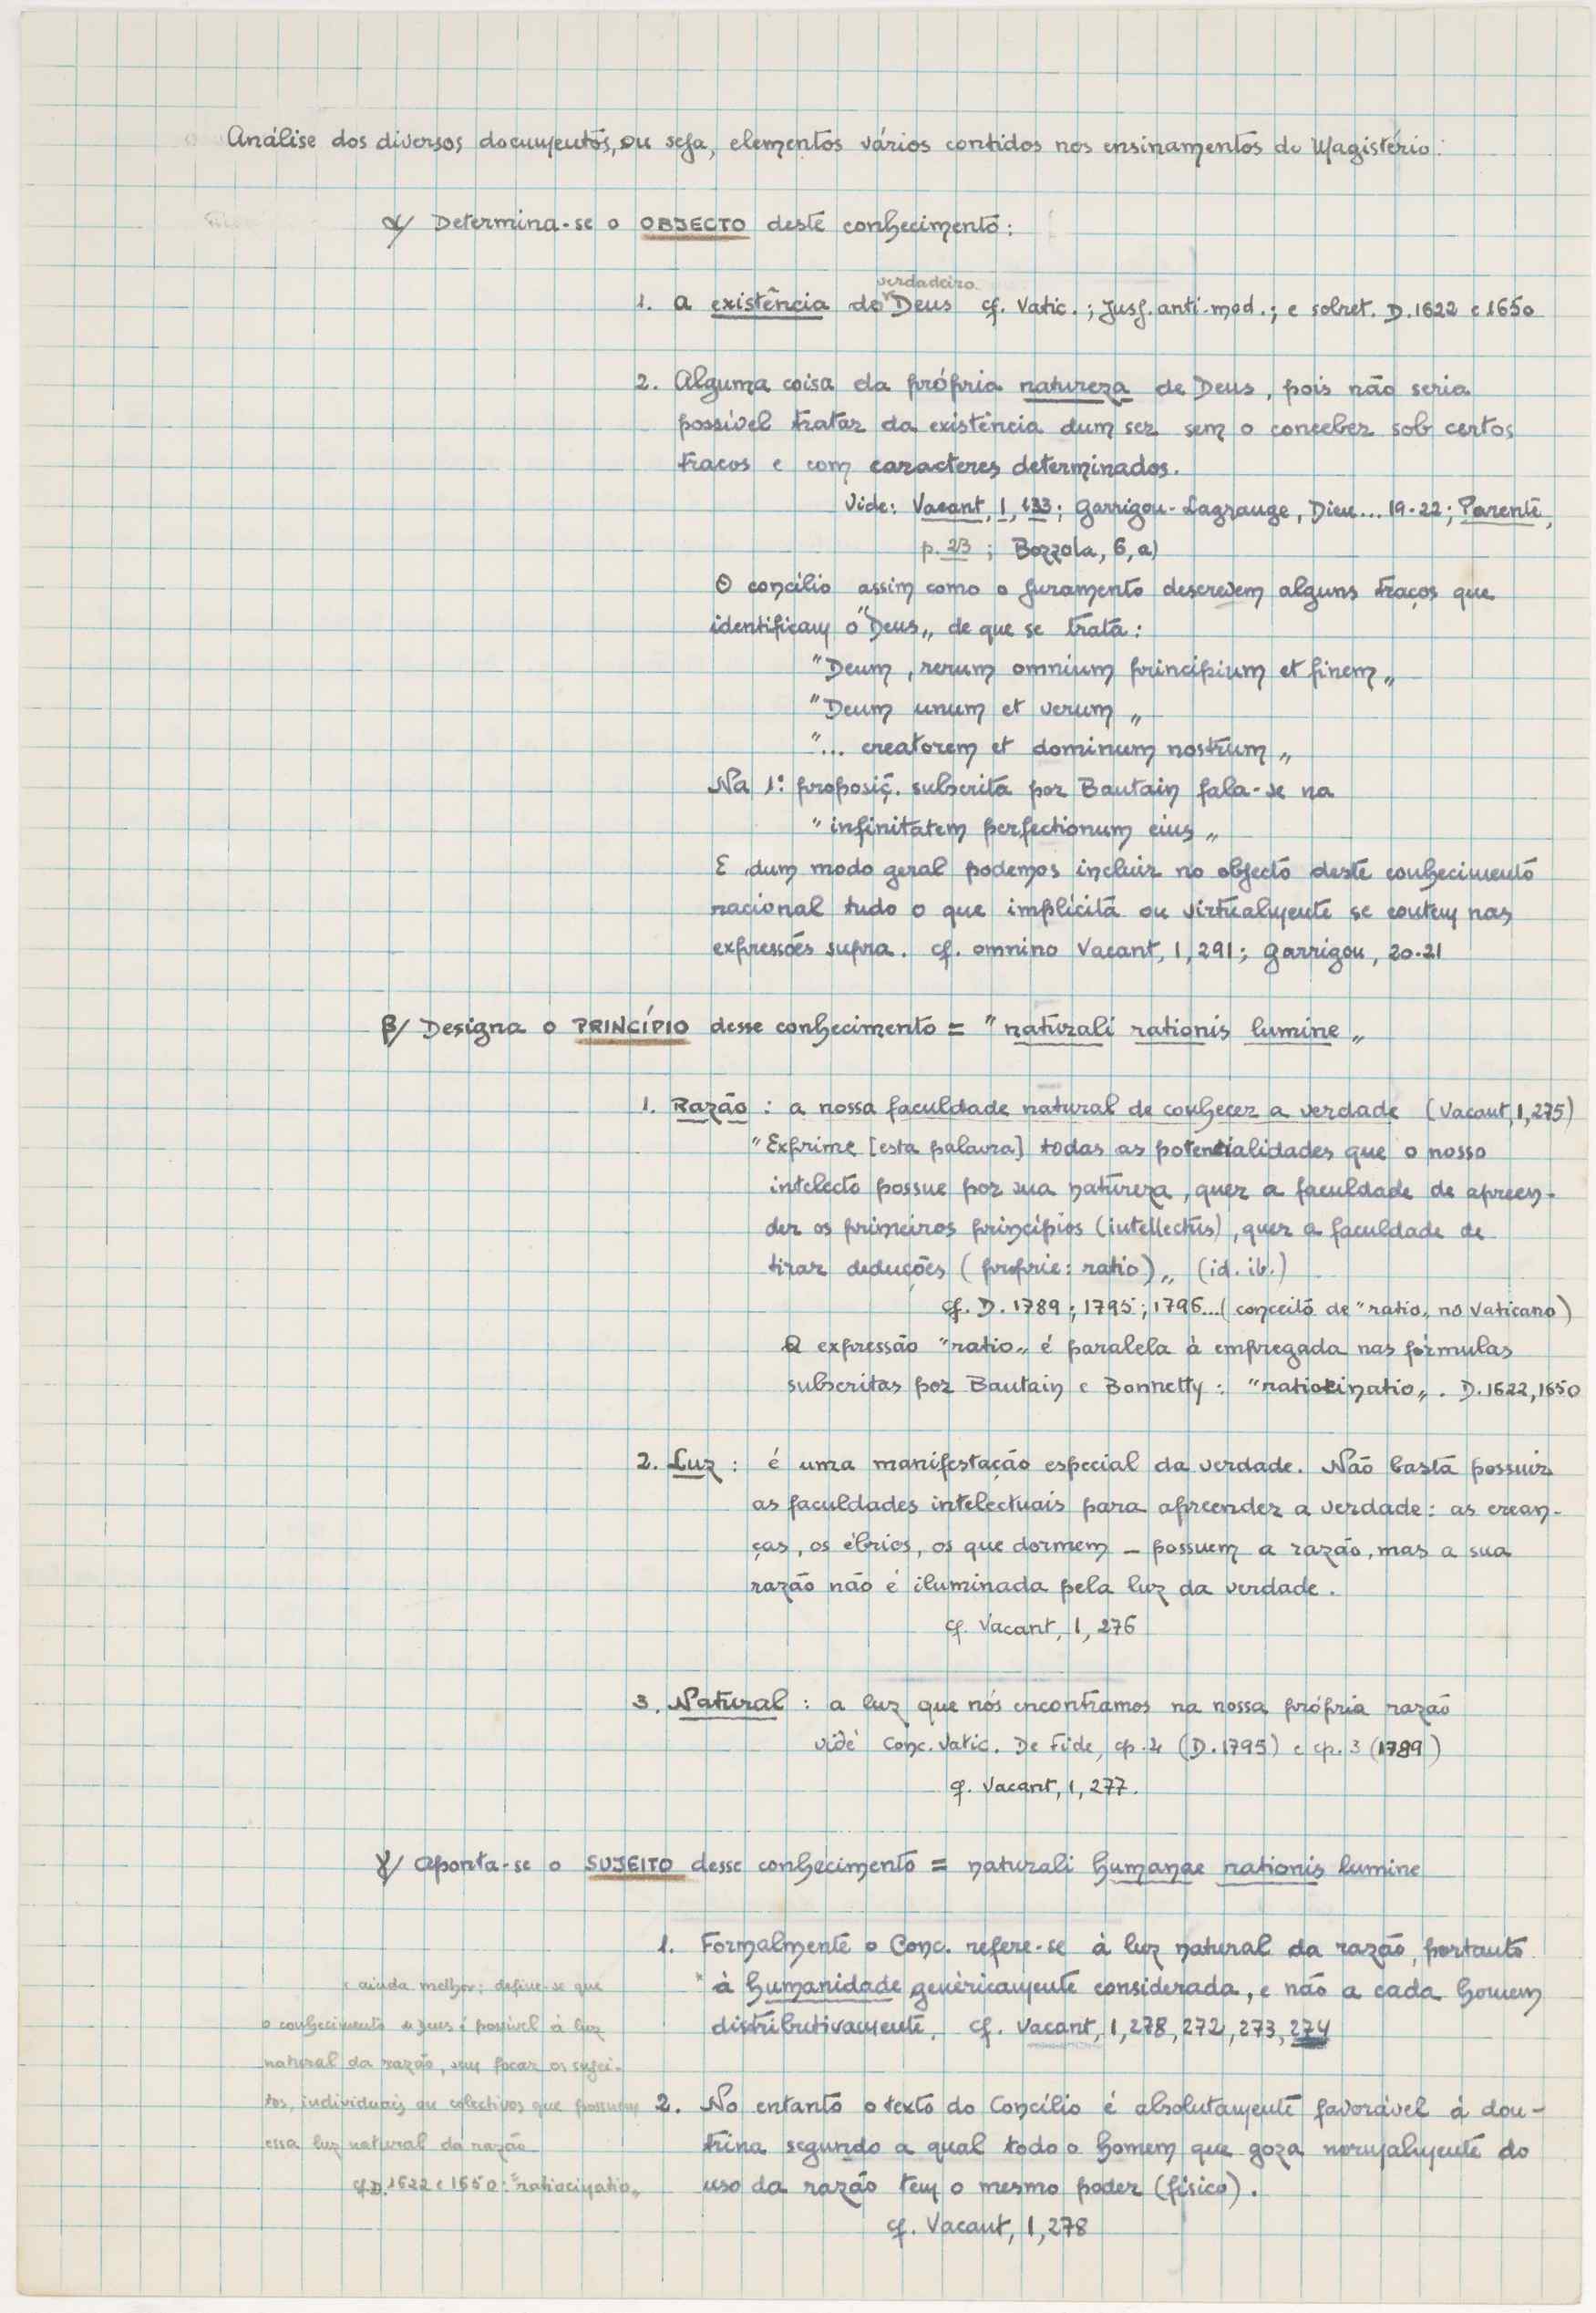 Análise dos diversos documentos, ou seja, elementos vários contidos nos ensinamentos do Magistério:
α/ Determina-se o OBJECTO deste conhecimento:
verdadeiro
1. a existência do Deus cf. Vatic.; Jusj. anti-mod.; e sobret. D. 1622 e 1650
2. Alguma coisa da própria natureza de Deus, pois não seria
possível tratar da existência dum ser sem o conceber sob certos
traços e com caracteres determinados.
Vide: Vacant, 1, 133; Garrigou-Lagrange, Dieu... 19-22; Parente,
p. 23; Bozzola, 6, a)
O concílio assim como o juramento descrevem alguns traços que
identificam o "Deus" de que se trata:
"Deum, rerum omnium principium et finem"
"Deum unum et verum"
"... creatorem et dominum nostrum"
Na 1ª proposiç. subscrita por Bautain fala-se na
"infinitatem perfectionum eius"
E dum modo geral podemos incluir no objecto deste conhecimento
racional tudo o que implícita ou virtualmente se contem nas
expressões supra. cf. omnino Vacant, 1, 291; Garrigou, 20-21
β/ Designa o PRINCÍPIO desse conhecimento = "naturali rationis lumine"
1. Razão: a nossa faculdade natural de conhecer a verdade (Vacant, 1, 275)
"Exprime [esta palavra] todas as potencialidades que o nosso
intelecto possue por sua natureza, quer a faculdade de apreen-
der os primeiros princípios (intellectus), quer a faculdade de
tirar deduções (proprie: ratio)" (id. ib.)
cf. D. 1789; 1795; 1796... (conceito de "ratio" no Vaticano)
A expressão "ratio" é paralela à empregada nas fórmulas
subscritas por Bautain e Bonnetty: "ratiocinatio". D. 1622, 1650
2. Luz: é uma manifestação especial da verdade. Não basta possuir
as faculdades intelectuais para apreender a verdade: as crean-
ças, os ébrios, os que dormem – possuem a razão, mas a sua
razão não é iluminada pela luz da verdade.
cf. Vacant, 1, 276
3. Natural: a luz que nós encontramos na nossa própria razão
vidé Conc. Vatic. De Fide, cp. 4 (D. 1795) e cp. 3 (1789)
cf. Vacant, 1, 277.
γ/ Aponta-se o SUJEITO desse conhecimento = naturali humanae rationis lumine
1. Formalmente o Conc. refere-se à luz natural da razão, portanto
* à humanidade genèricamente considerada, e não a cada homem
distributivamente. cf. Vacant, 1, 278, 272, 273, 274
x ainda melhor: define-se que
o conhecimento de Deus é possível à luz
natural da razão, sem focar os sujei-
tos, individuais ou colectivos que possuem
essa luz natural da razão
cf. D. 1622 e 1650: "ratiocinatio"
2. No entanto o texto do Concílio é absolutamente favorável à dou-
trina segundo a qual todo o homem que goza normalmente do
uso da razão tem o mesmo poder (físico).
cf. Vacant, 1, 278